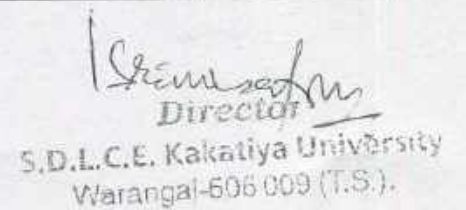 Director
S.D.L.C.E. Kakatiya University
Warangal-506 009 (T.S.).